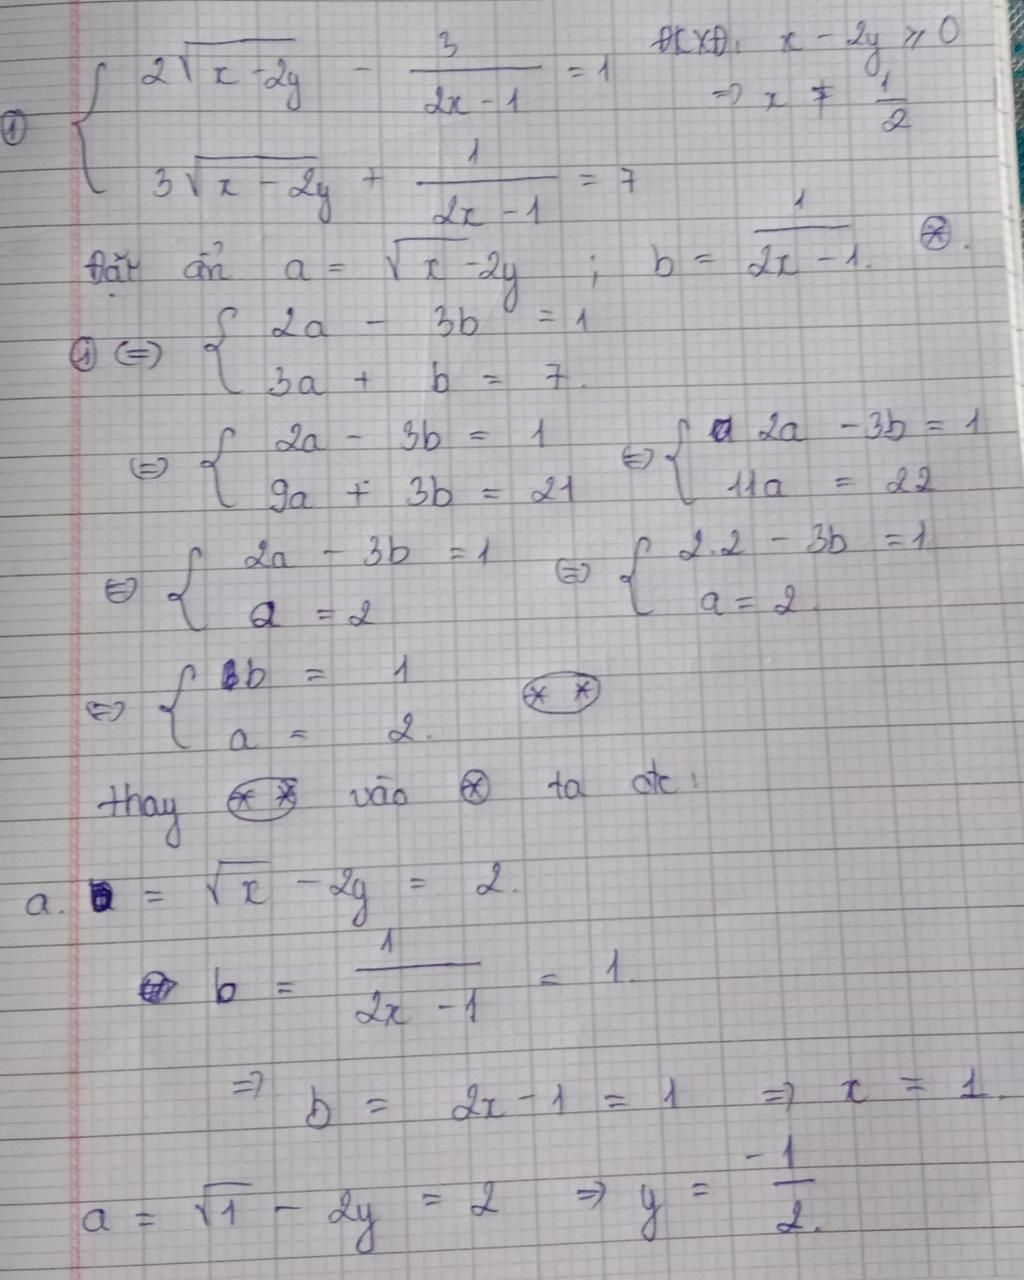 ① { 2√(x - 2y) - 3/(2x - 1) = 1 ĐKXĐ: x - 2y ≥ 0
⇒ x ≠ 1/2
3√(x - 2y) + 1/(2x - 1) = 7
Đặt ẩn a = √x - 2y ; b = 1/(2x - 1). ⊛.
① ⇔ { 2a - 3b = 1
3a + b = 7.
⇔ { 2a - 3b = 1 ⇔ { 2a - 3b = 1
9a + 3b = 21 11a = 22
⇔ { 2a - 3b = 1 ⇔ { 2.2 - 3b = 1
a = 2 a = 2
⇔ { b = 1 (* *)
a = 2.
thay (* *) vào ⊛ ta đc:
a. = √x - 2y = 2.
b = 1/(2x - 1) = 1.
⇒ b = 2x - 1 = 1 ⇒ x = 1.
a = √1 - 2y = 2 ⇒ y = -1/2.